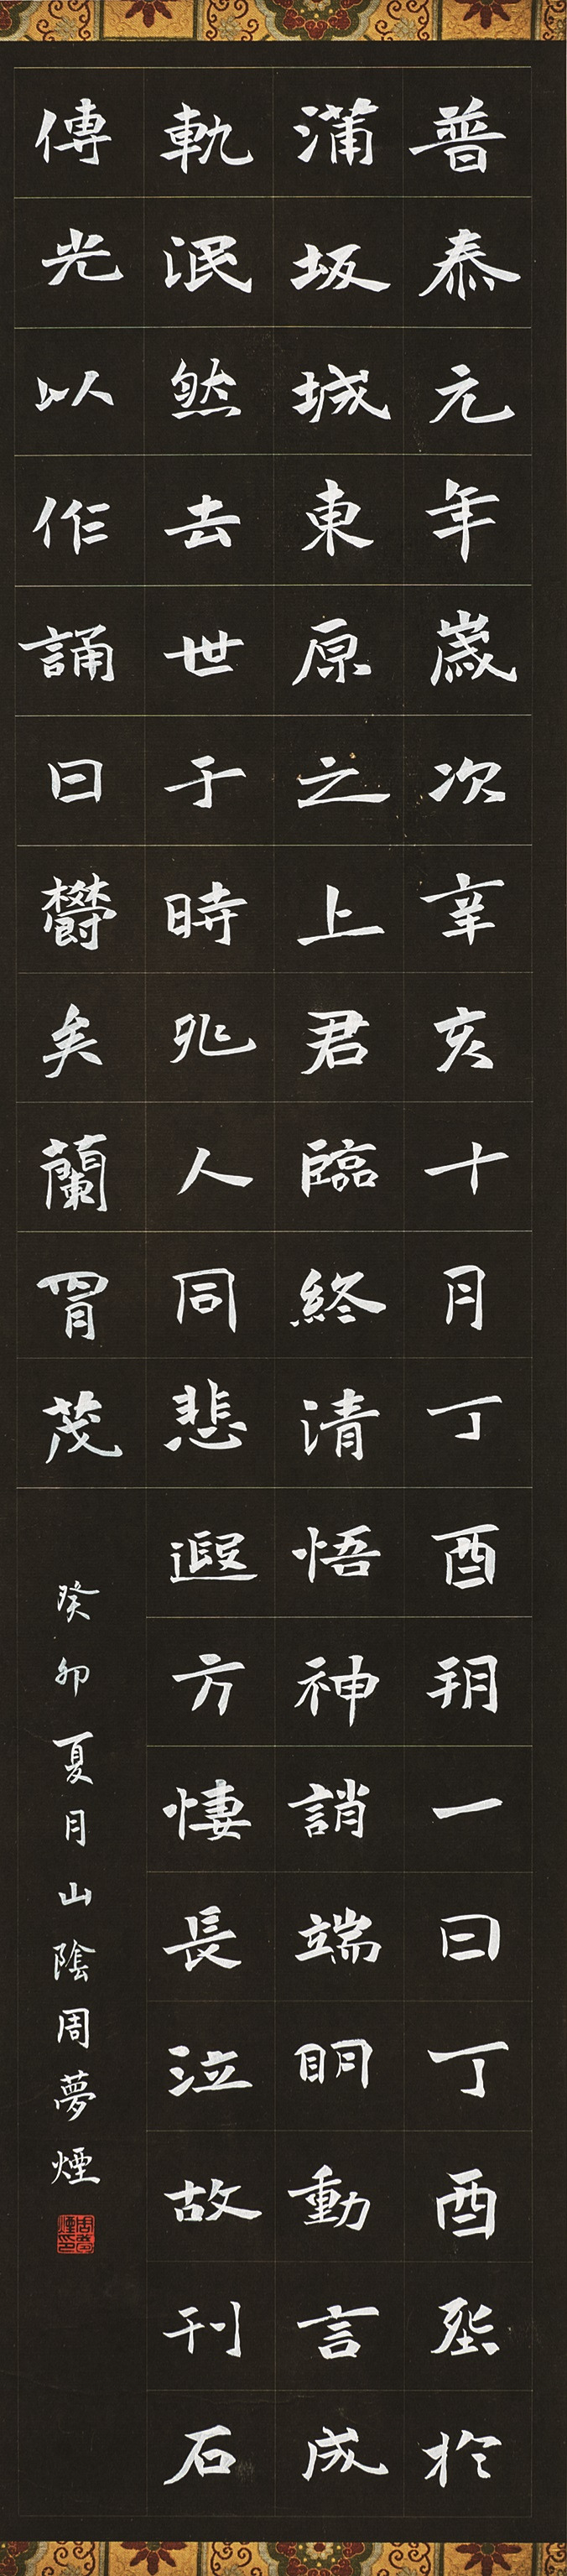 普泰元年歲次辛亥十月丁酉朔一日丁酉琞於
蒲坂城東原之上君臨終清悟神誚端明動言成
軌泯然去世于時兆人同悲遐方悽長泣故刊石
傳光以作誦曰欝矣蘭胃茂
癸卯夏月山陰周夢煙